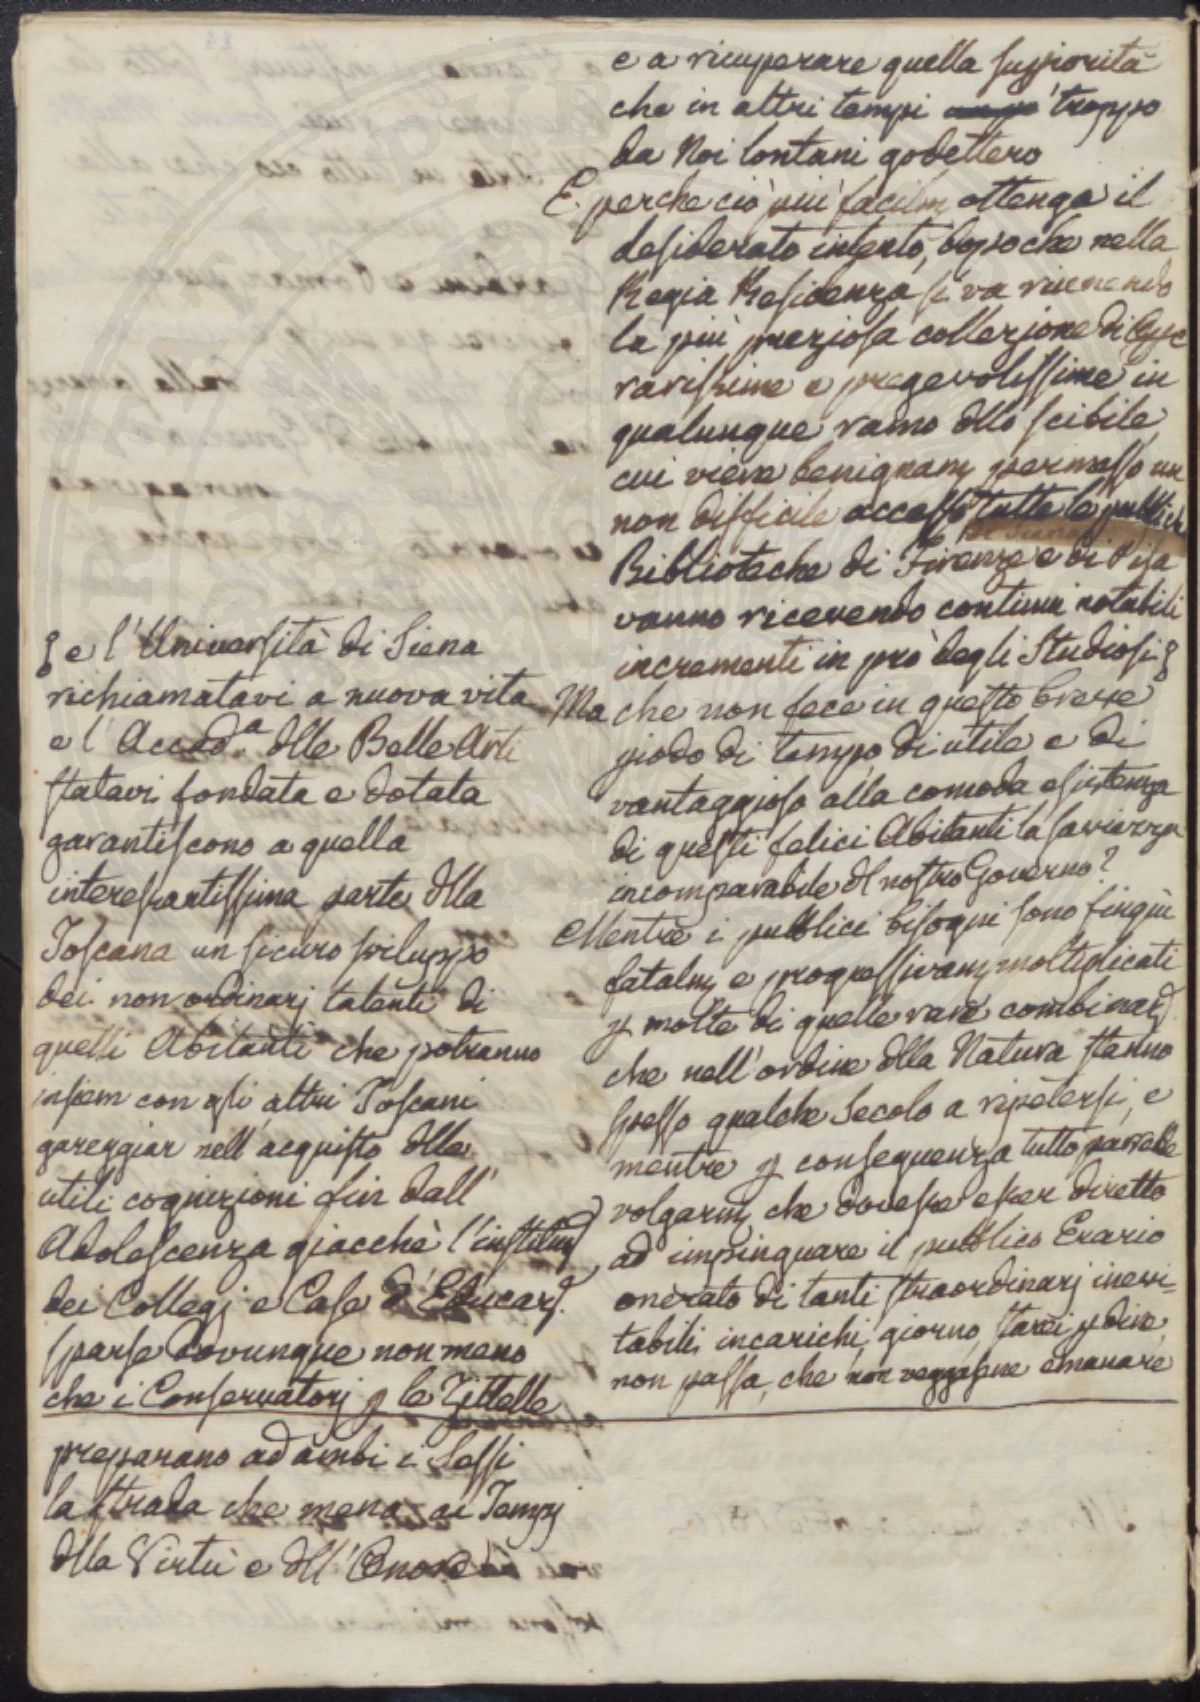 e a ricuperare quella supiorità
che in altri tempi troppo
da Noi lontani godettero
E perche ciò più facilm ottenga il
desiderato intento, dopo che nella
Regia Residenza si va riunendo
la più preziosa collezione di Opere
rarissime e pregevolissime in
qualunque ramo dllo scibile,
cui viene benignam permesso un
non difficile accesso tutte le pubbliche
Biblioteche di Firenze e di Pisa
di Siena
vanno ricevendo continui notabili
incrementi in prò degli Studiosi
Ma che non fece in questo breve
piodo di tempo di utile e di
vantaggioso alla comoda esistenza
di questi felici Abitanti la saviezza
incomparabile dl nostro Governo?
Mentre i pubblici bisogni sono finqui
fatalm e progressivam moltiplicati
p molte di quelle rare combinaz
che nell'ordine dlla Natura stanno
spesso qualche Secolo a ripetersi, e
mentre p conseguenza tutto parrebbe
volgarm che dovesse esser diretto
ad impinguare il pubblico Erario
onerato di tanti straordinarj inevi-
tabili incarichi, giorno, starei p dire,
non passa, che non veggasene emanare
e l'Università di Siena
richiamatavi a nuova vita
e l'Accad.a dlle Belle Arti
statavi fondata e dotata
garantiscono a quella
interessantissima parte dlla
Toscana un sicuro sviluppo
dei non ordinarj talenti di
quelli Abitanti che potranno
insiem con gli altri Toscani
gareggiar nell'acquisto dlle
utili cognizioni fin dall'
Adolescenza giacchè l'instituz
dei Collegj e Case d'Educaz.
sparse dovunque non meno
che i Conservatorj p le Zittelle
preparano ad ambi i Sessi
la strada che mena ai Tempj
dlla Virtù e dll'Onore